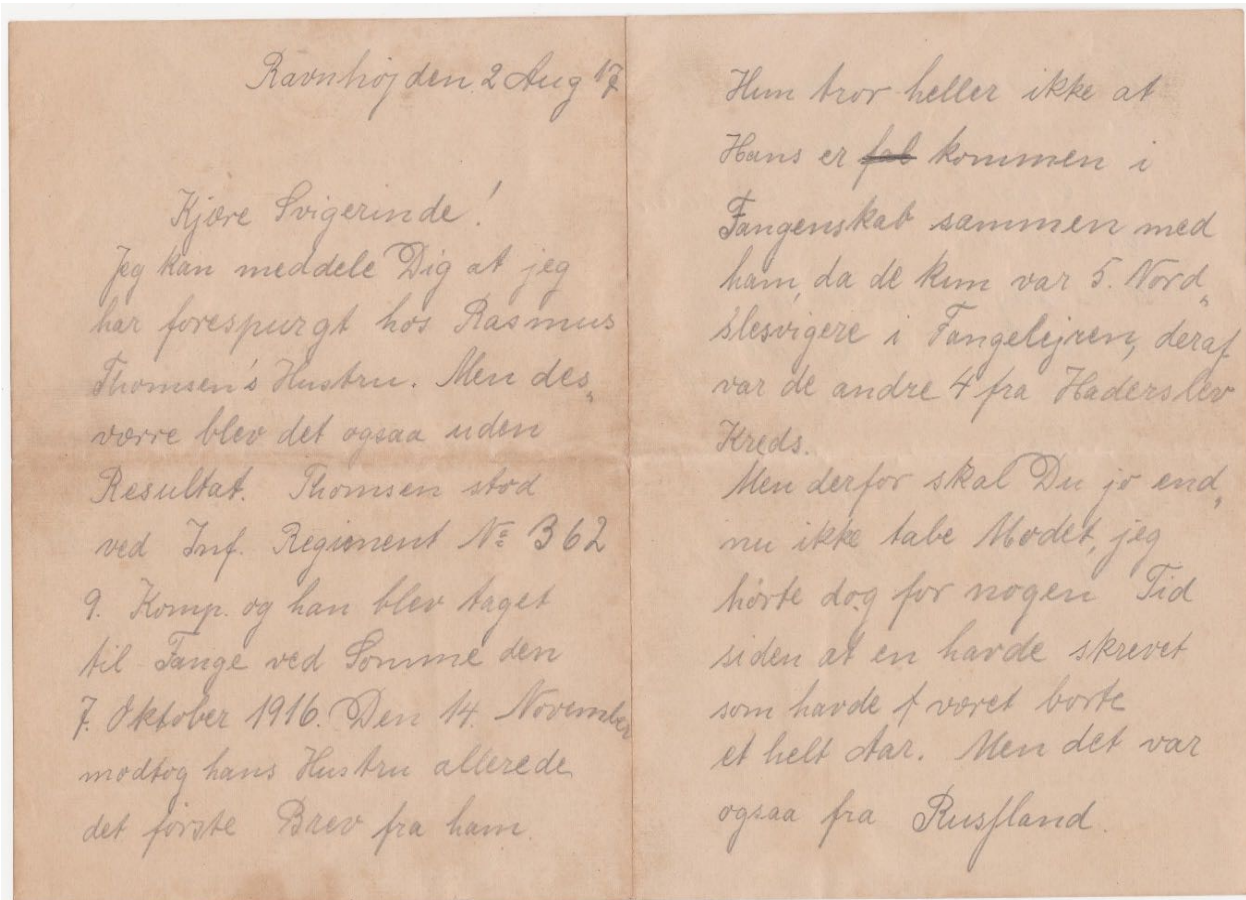 Ravnhøj den 2 Aug 17
Kjære Svigerinde!
Jeg kan meddele Dig at jeg
har forespurgt hos Rasmus
Thomsen's Hustru. Men des„
værre blev det ogsaa uden
Resultat. Thomsen stod
ved Inf. Regiment № 362
9. Komp. og han blev taget
til Fange ved Somme den
7. Oktober 1916. Den 14. November
modtog hans Hustru allerede
det første Brev fra ham.
Hun tror heller ikke at
Hans er fal kommen i
Fangenskab sammen med
ham, da de kun var 5. Nord„
slesvigere i Fangelejren, deraf
var de andre 4 fra Haderslev
Kreds.
Men derfor skal Du jo end„
nu ikke tabe Modet, jeg
hørte dog for nogen Tid
siden at en havde skrevet
som havde været borte
et helt Aar. Men det var
ogsaa fra Rusſland.